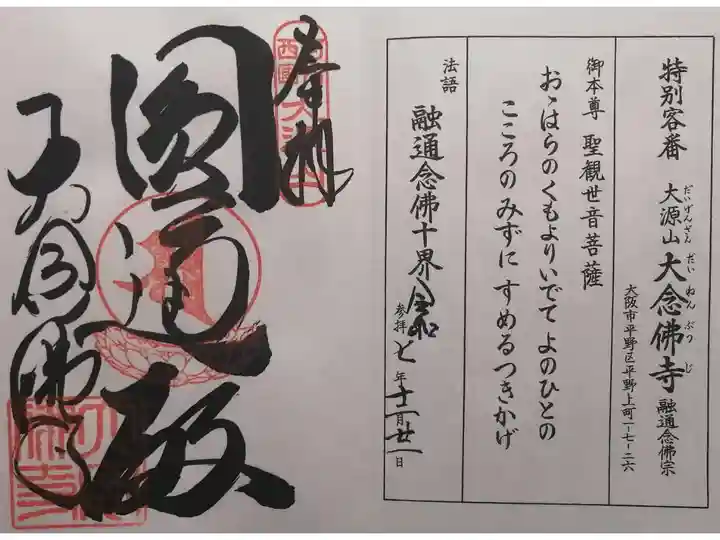 特別客番 大源山 大念佛寺 融通念佛宗
だいげんざん だいねんぶつじ
大阪市平野区平野上町一-七-二六
御本尊 聖観世音菩薩
おゝはらのくもよりいでて よのひとの
こころのみずに すめるつきかげ
法語 融通念佛十界
令和
参拝 七年十一月廿一日
奉拝
圓通殿
大念佛寺